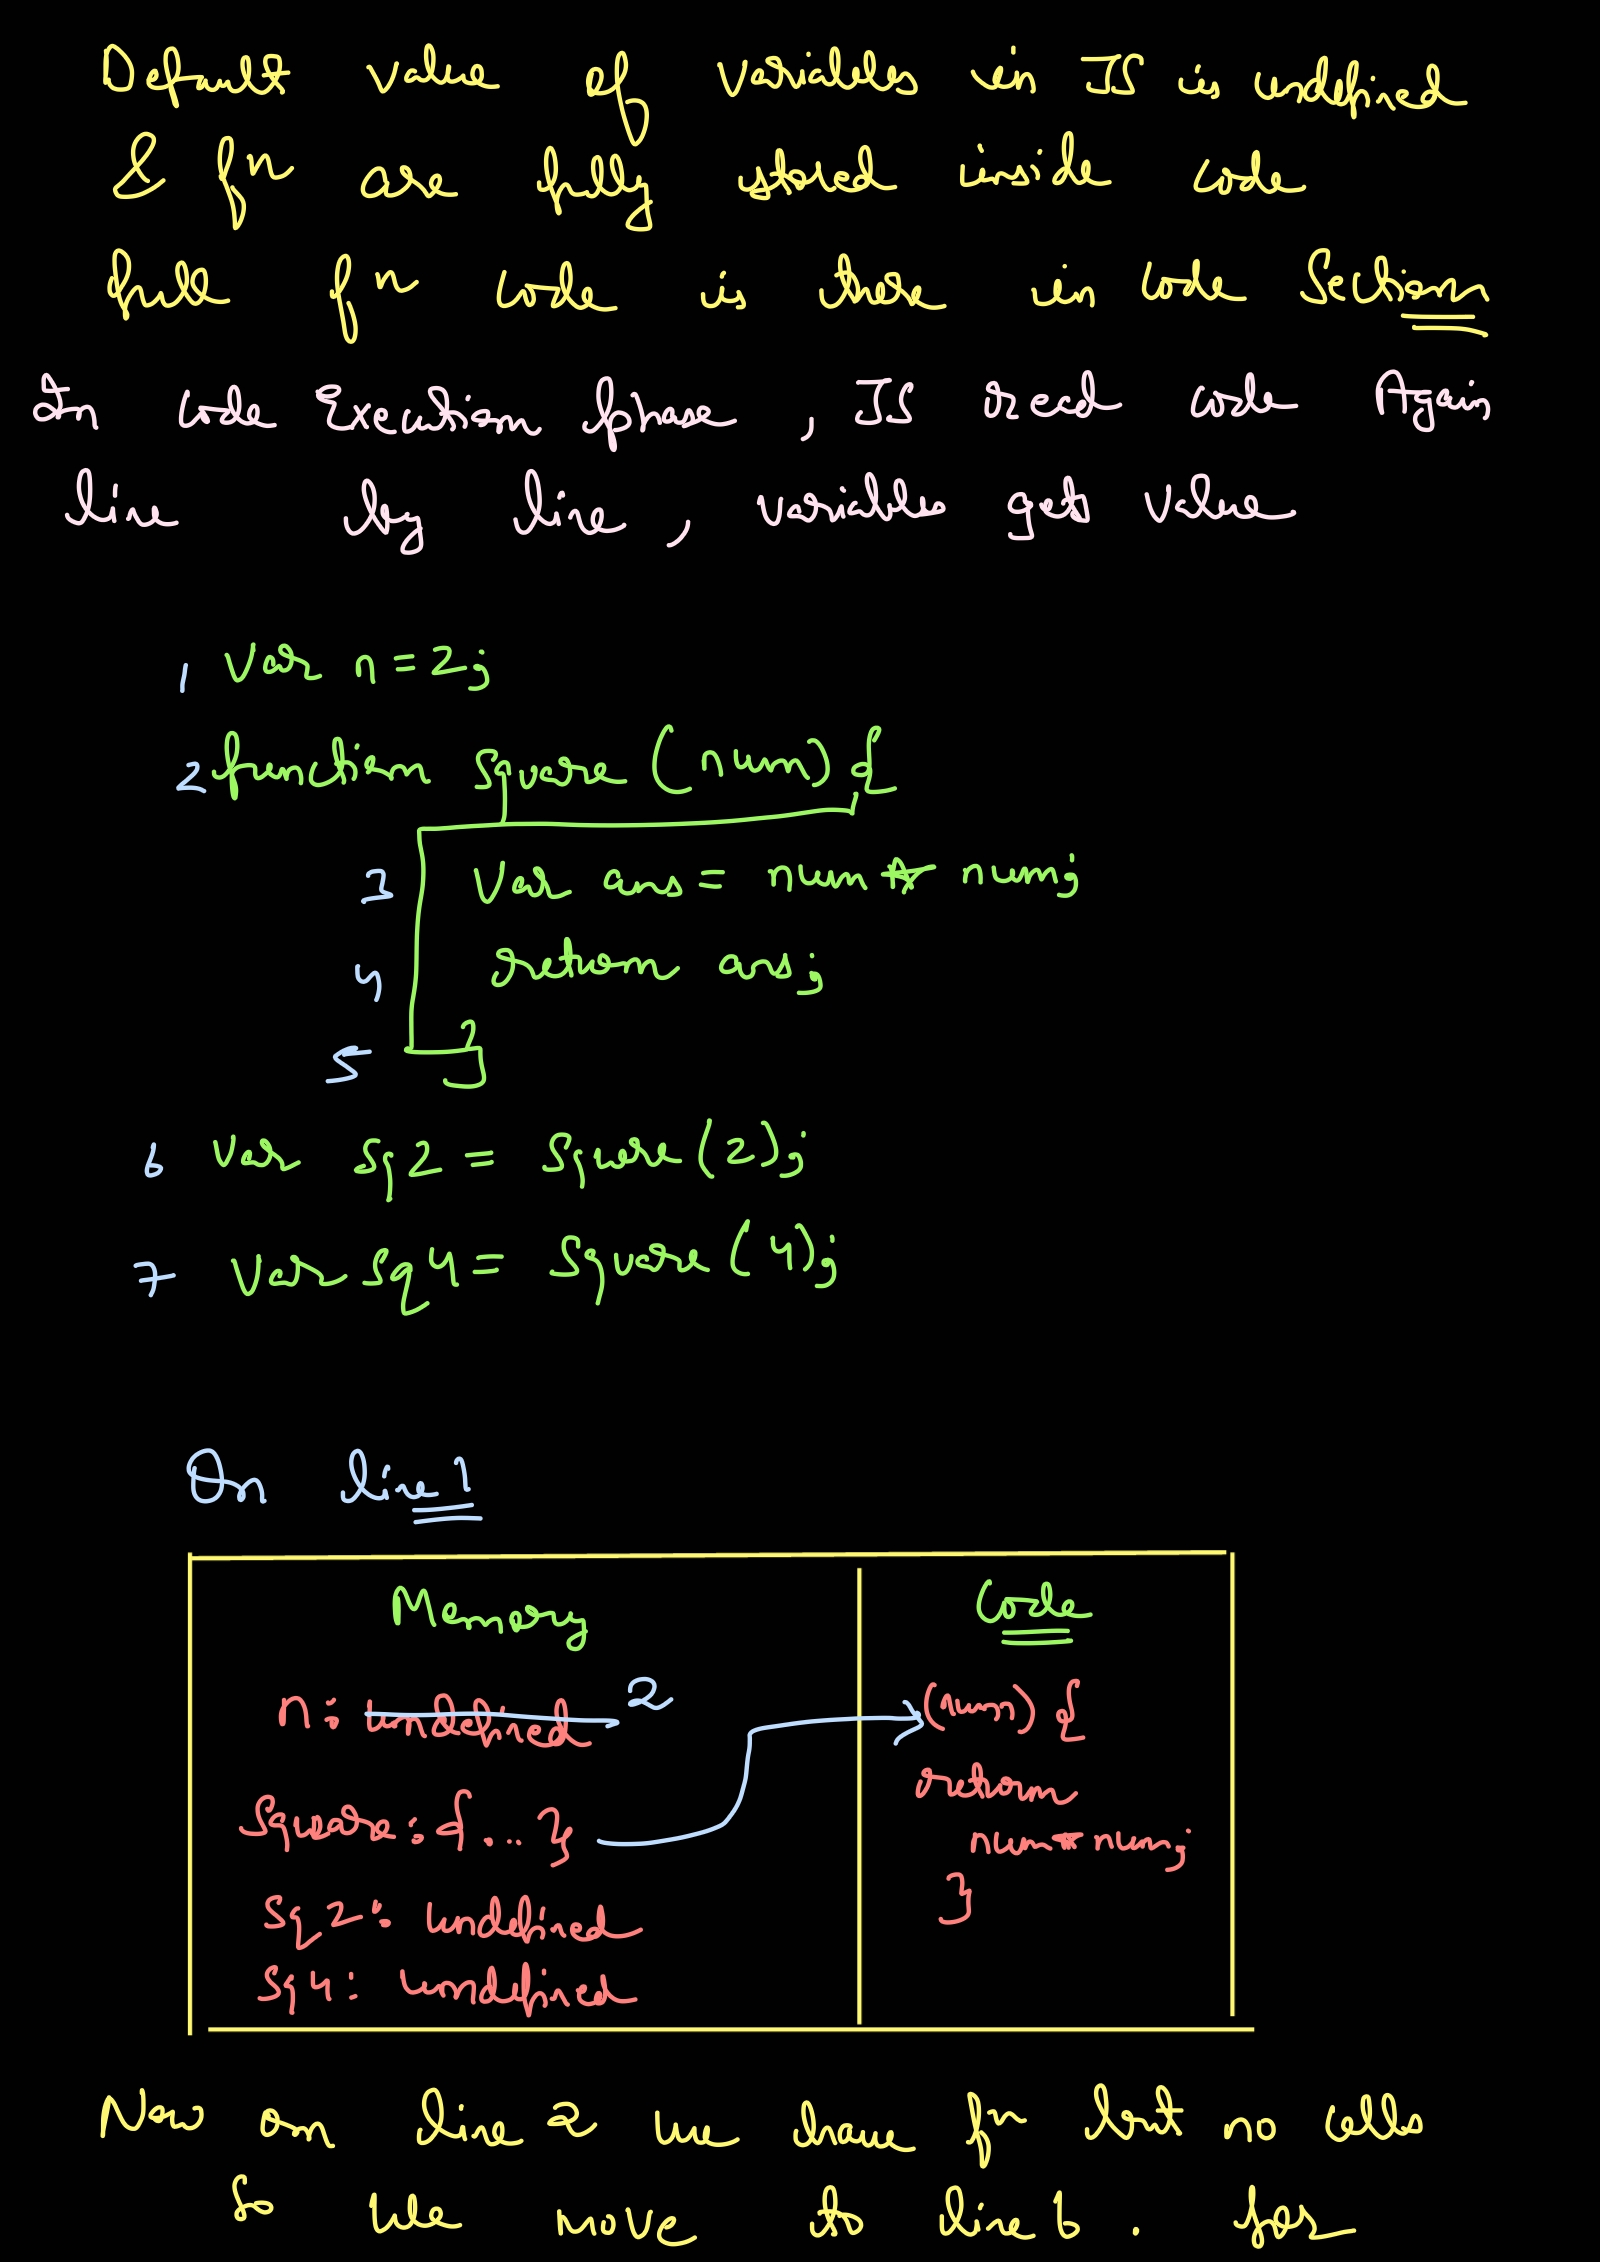 Default value of variables in JS is undefined
& fn are fully stored inside code
full fn code is there in code Section
In code Execution phase , JS read code Again
line by line , variables get value
1 Var n = 2;
2 function square (num) {
3 Var ans = num * num;
4 return ans;
5 }
6 Var sq2 = Square (2);
7 Var sq4 = Square (4);
On line 1
Memory Code
n: undefined 2 (num) {
Square: {...} return
num * num;
}
Sq2: undefined
Sq4: undefined
Now on line 2 we have fn but no calls
So we move to line 6 . for